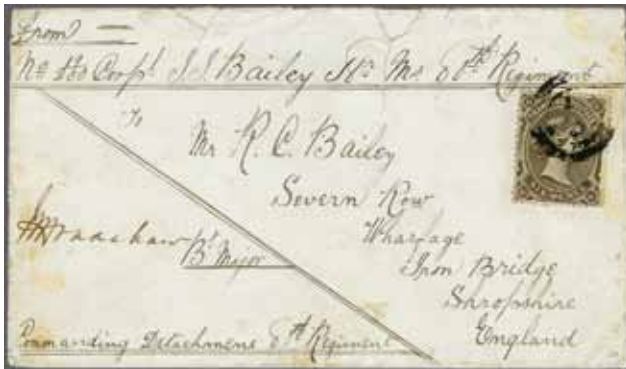 From
No Corpl J. J. Bailey Her Ms 8th Regiment
To
Mr R. C. Bailey
Severn Row
Wharfage
Iron Bridge
Shropshire
England
Bradshaw
Bt Major
Commanding Detachment 8th Regiment